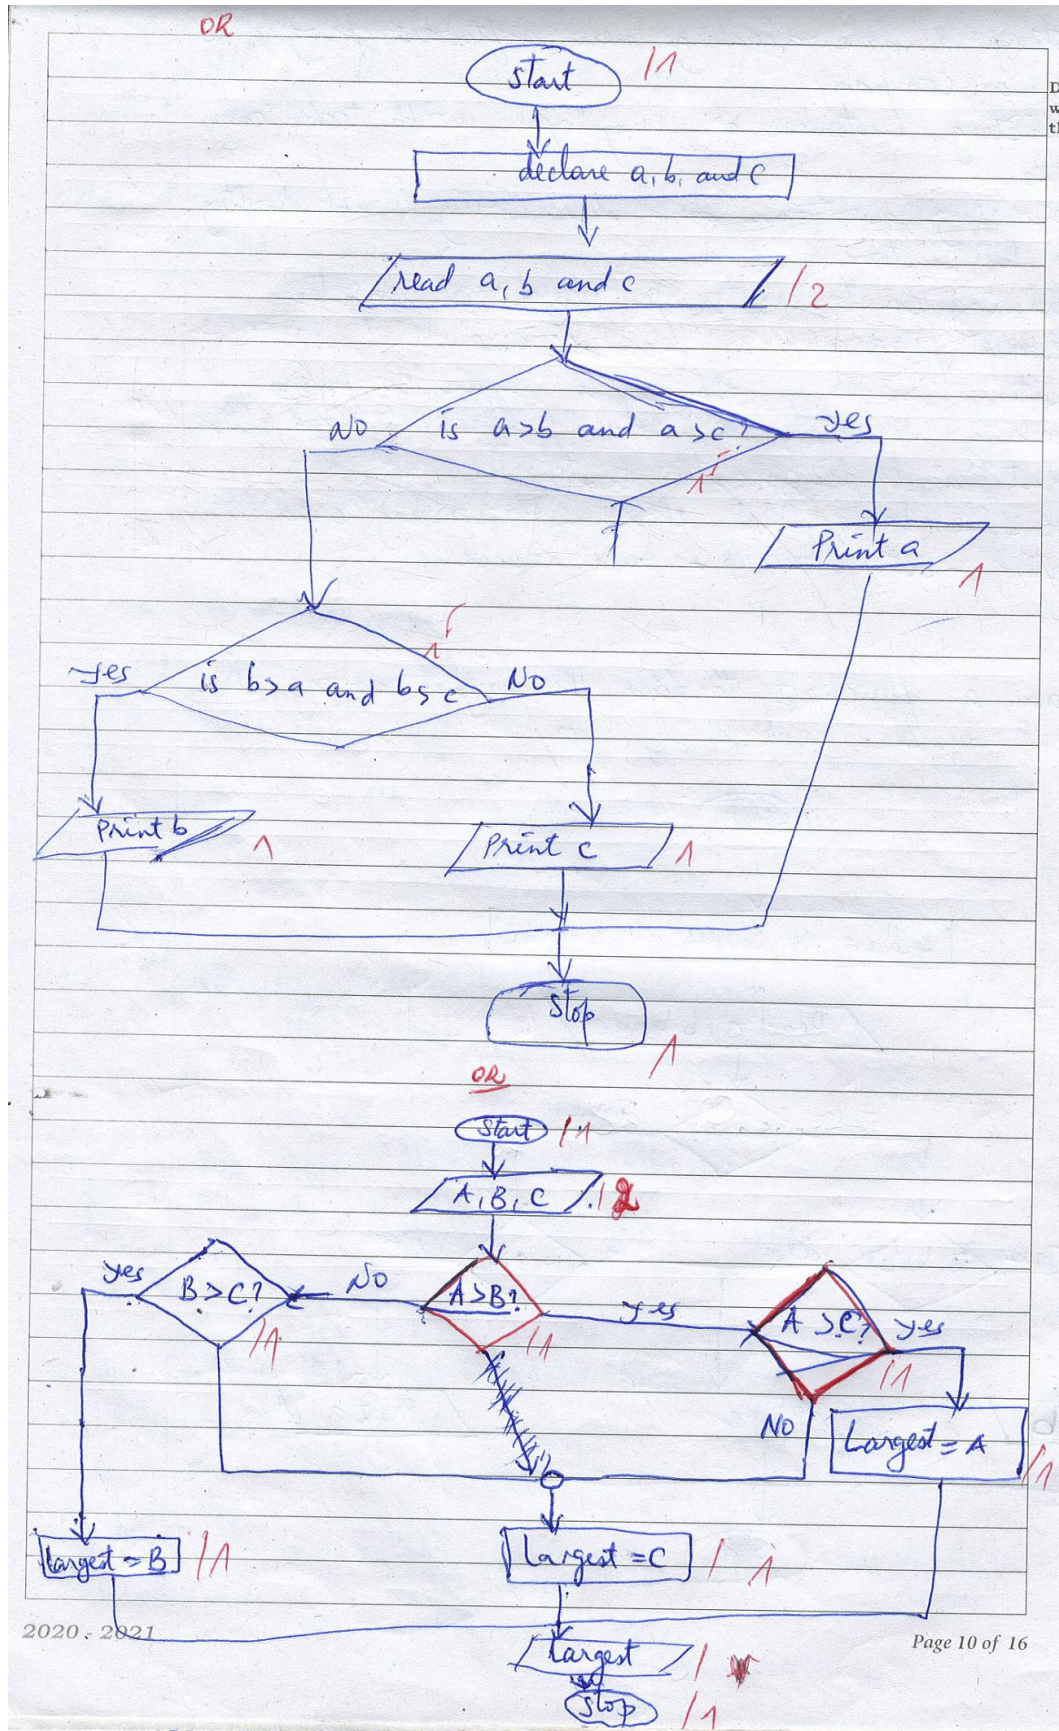 OR
start /1
declare a, b, and c
read a, b and c /2
NO is a>b and a>c? yes
1
Print a
1
1
yes is b>a and b>c No
Print b 1
Print c 1
Stop
1
OR
Start /1
A, B, C /2
yes B>C? No A>B? yes A>C? yes
/1 /1 /1
NO Largest = A
/1
largest = B /1 Largest = C /1
2020 - 2021
Page 10 of 16
largest /
stop /1